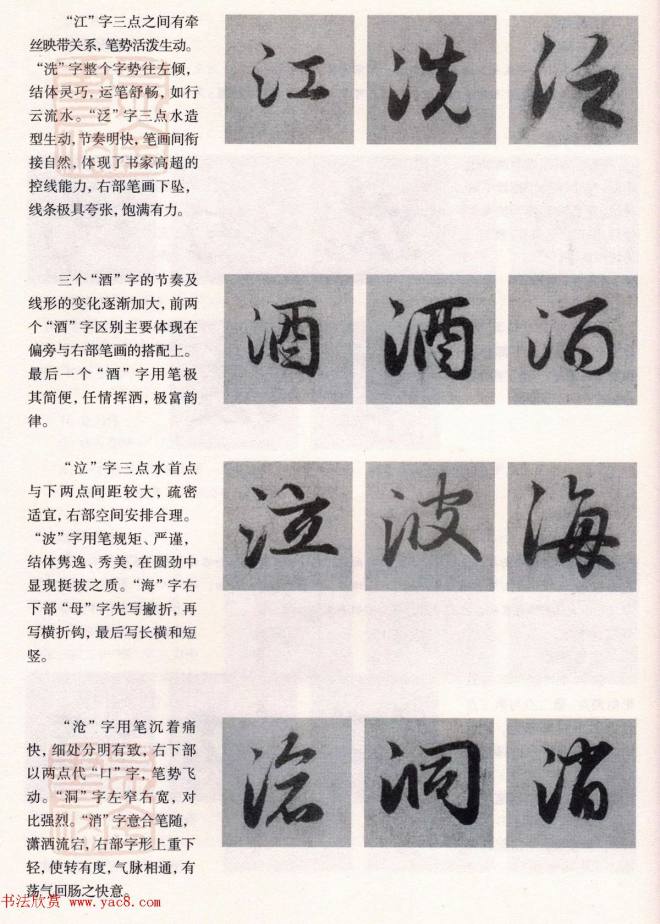 “江”字三点之间有牵
丝映带关系，笔势活泼生动。
“洗”字整个字势往左倾，
结体灵巧，运笔舒畅，如行
云流水。“泛”字三点水造
型生动，节奏明快，笔画间衔
接自然，体现了书家高超的
控线能力，右部笔画下坠，
线条极具夸张，饱满有力。
江 洗 泛
三个“酒”字的节奏及
线形的变化逐渐加大，前两
个“酒”字区别主要体现在
偏旁与右部笔画的搭配上。
最后一个“酒”字用笔极
其简便，任情挥洒，极富韵
律。
酒 酒 酒
“泣”字三点水首点
与下两点间距较大，疏密
适宜，右部空间安排合理。
“波”字用笔规矩、严谨，
结体隽逸、秀美，在圆劲中
显现挺拔之质。“海”字右
下部“母”字先写撇折，再
写横折钩，最后写长横和短
竖。
泣 波 海
“沧”字用笔沉着痛
快，细处分明有致，右下部
以两点代“口”字，笔势飞
动。“洞”字左窄右宽，对
比强烈。“消”字意合笔随，
潇洒流宕，右部字形上重下
轻，使转有度，气脉相通，有
荡气回肠之快意。
滄 洞 消
书法欣赏 www.yac8.com